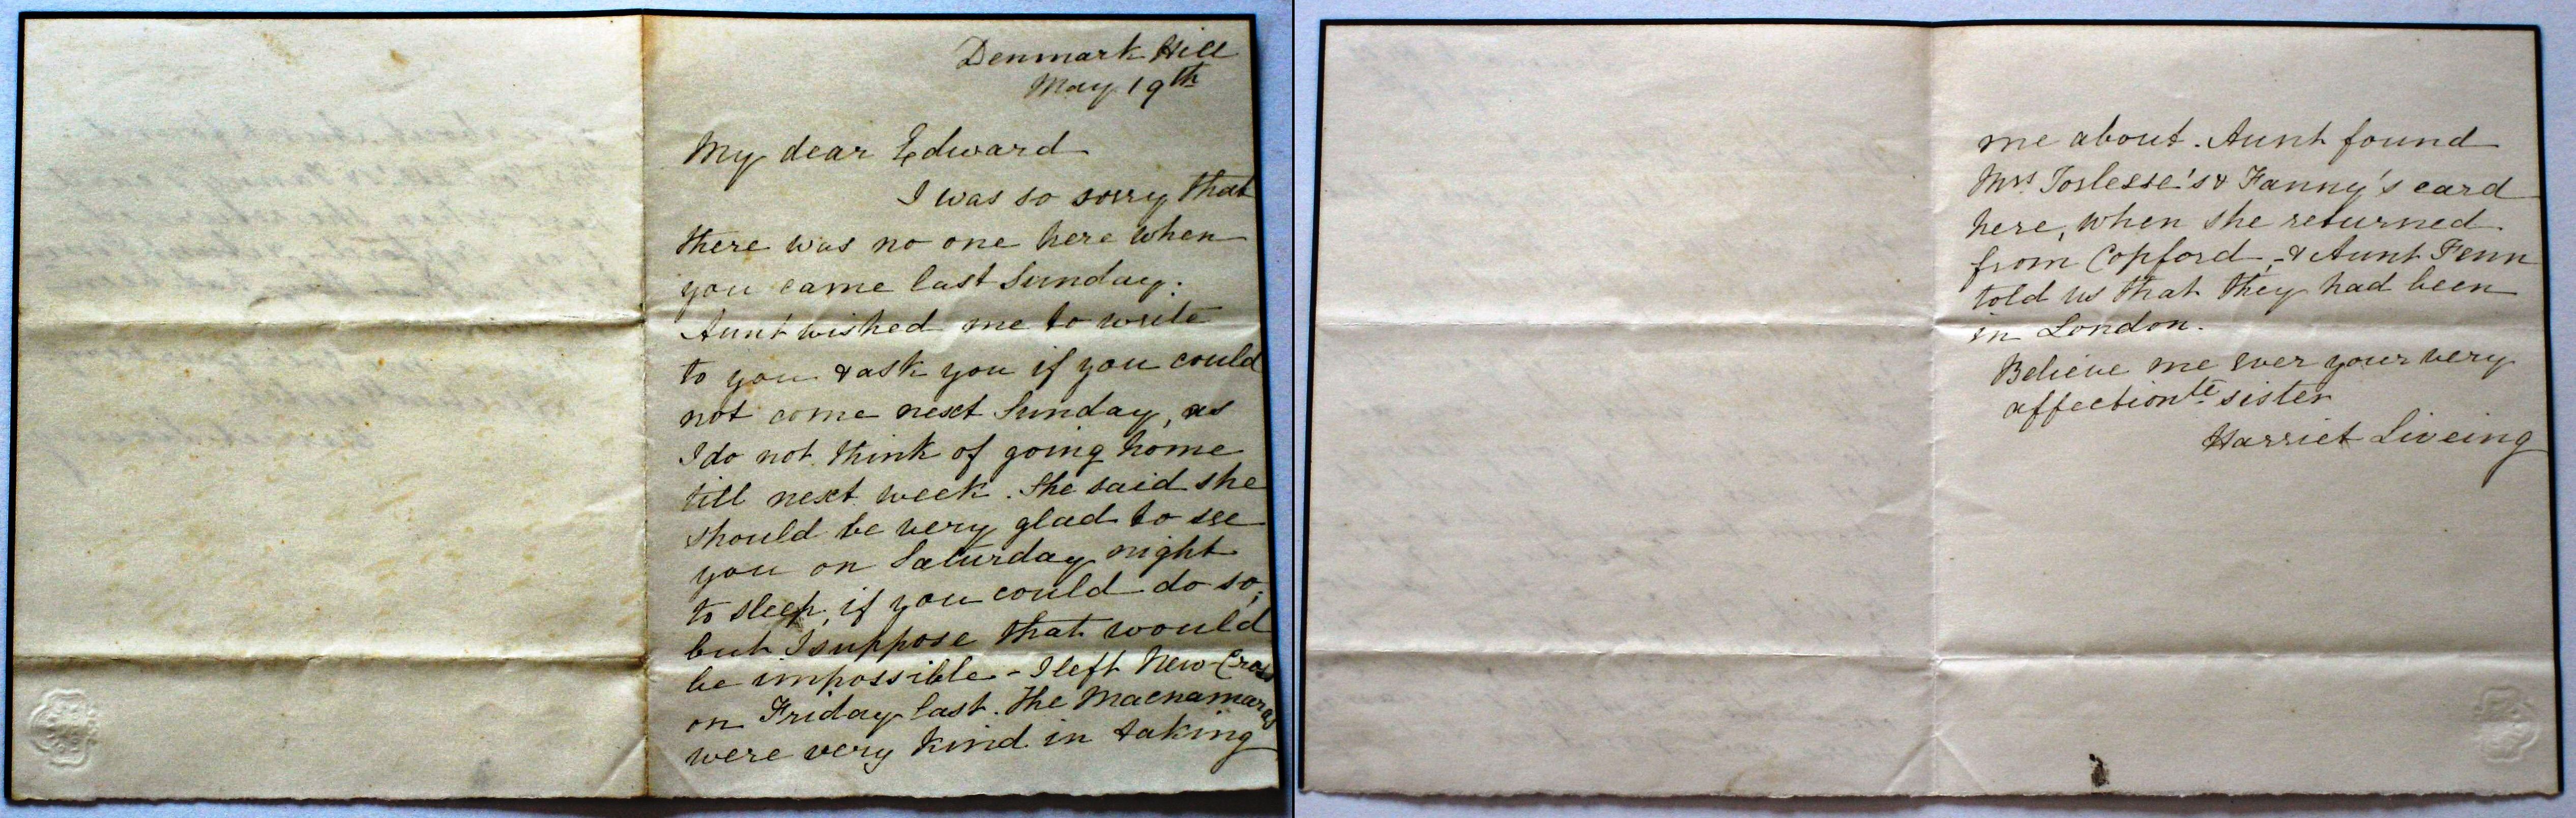 Denmark Hill
May 19th
My dear Edward
I was so sorry that
there was no one here when
you came last Sunday.
Aunt wished me to write
to you & ask you if you could
not come next Sunday, as
I do not think of going home
till next week. She said she
should be very glad to see
you on Saturday night
to sleep, if you could do so;
but I suppose that would
be impossible - I left New Cross
on Friday last. The Macnamaras
were very kind in taking
me about. Aunt found
Mrs Torlesse's & Fanny's card
here, when she returned
from Copford, - & Aunt Fenn
told us that they had been
in London.
Believe me ever your very
affectionte sister
Harriet Liveing